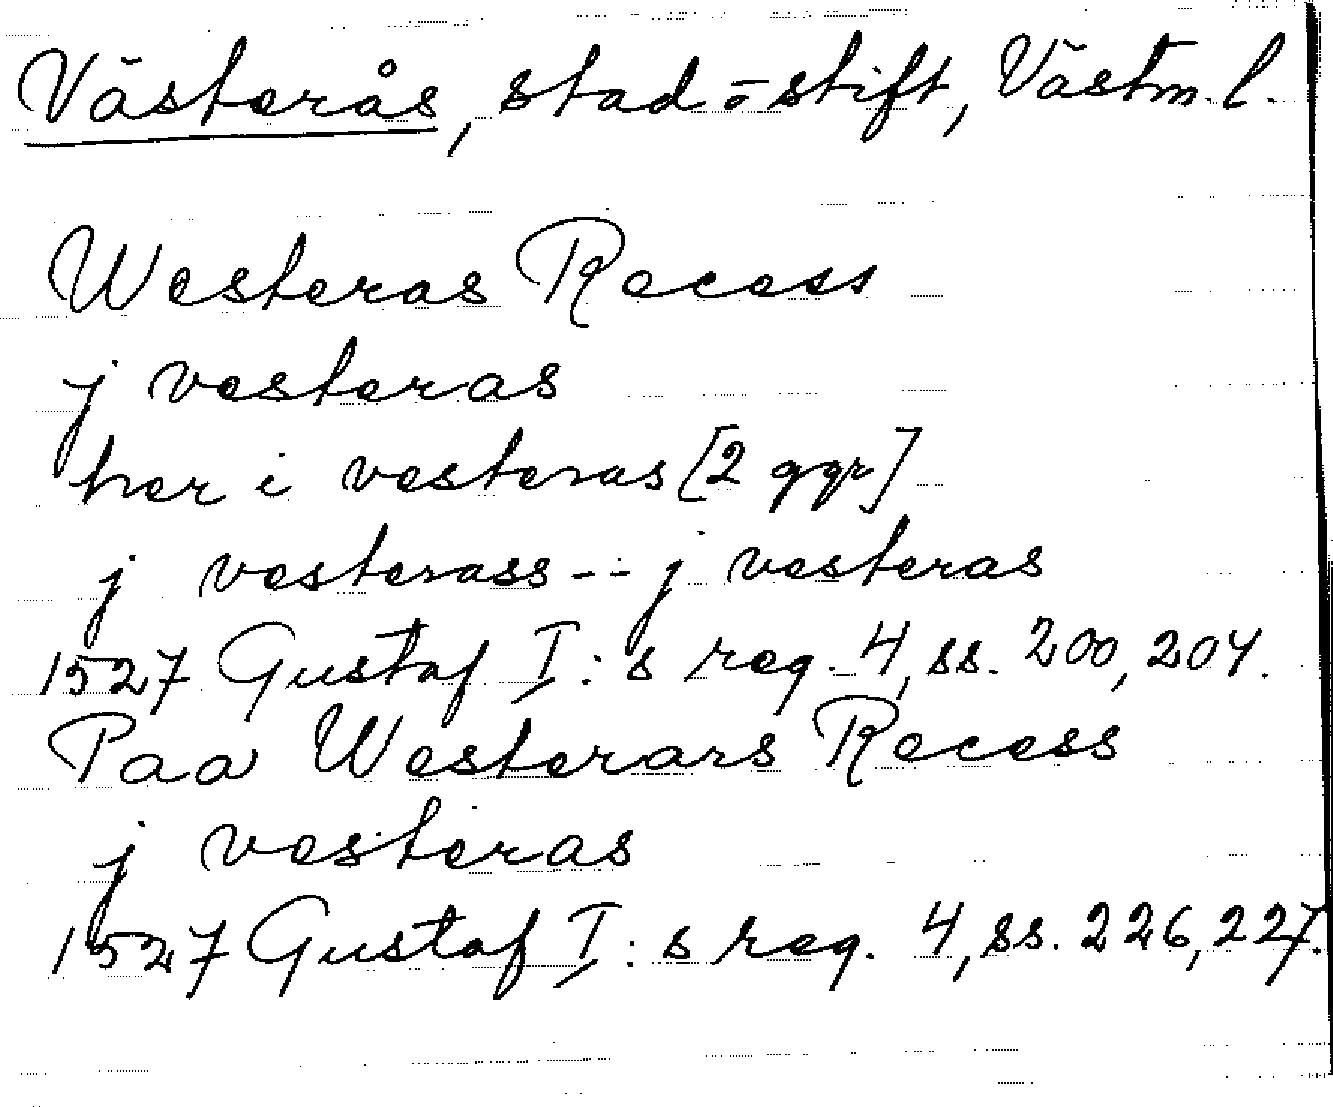 Västerås, stad o stift, Västm. l.
Westeras Recess
j vesteras
her i vesteras [2 ggr]
j vesterass -- j vesteras
1527 Gustaf I:s reg. 4, ss. 200, 204.
Paa Westerars Recess
j vesteras
1527 Gustaf I:s reg. 4, ss. 226, 227.